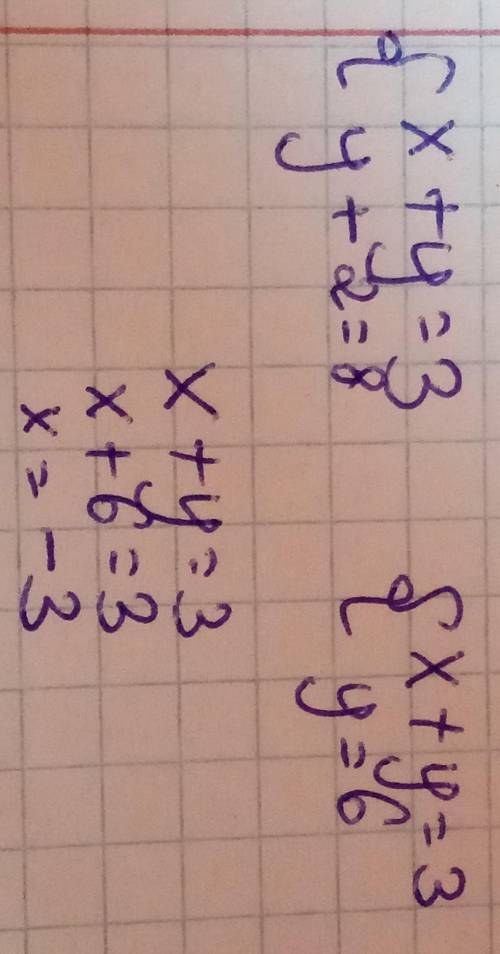 { x + y = 3
y + 2 = 8
{ x + y = 3
y = 6
x + y = 3
x + 6 = 3
x = -3